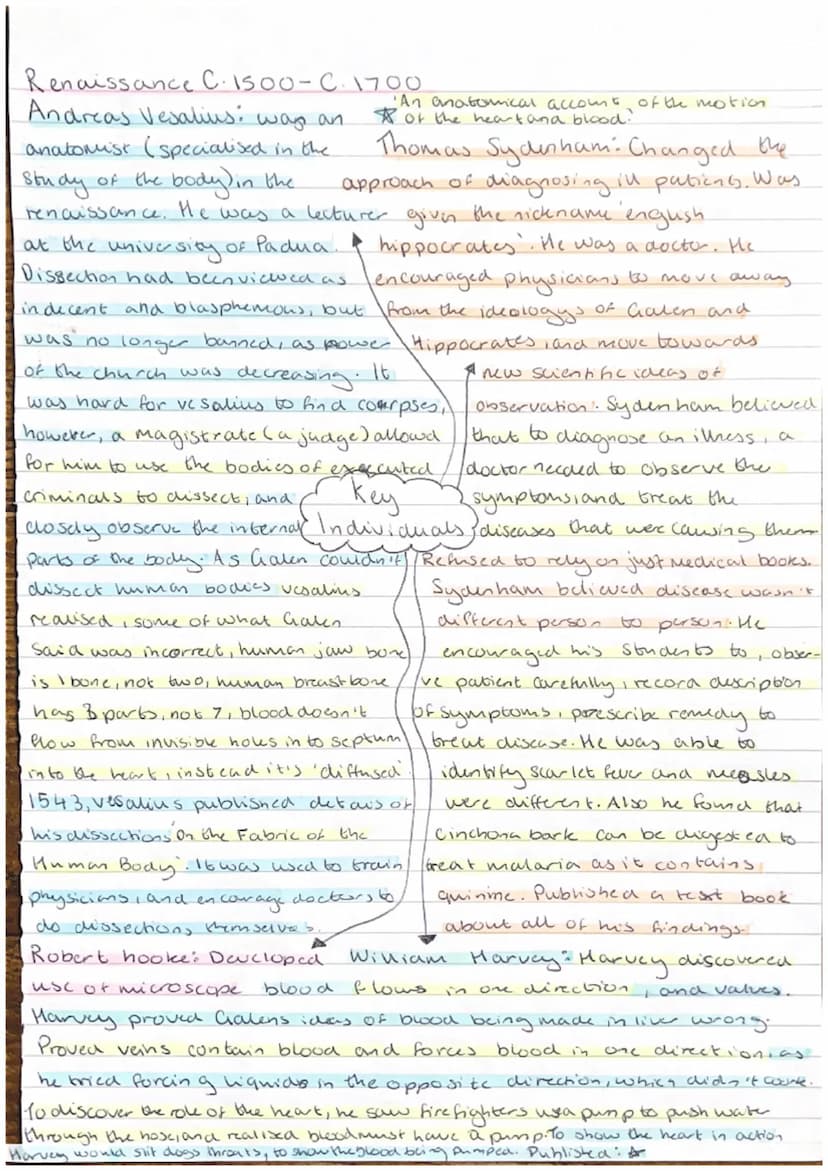 Renaissance C.1500-C.1700
Andreas Vesalius: was an
anatomist (specialised in the
study of the body) in the
renaissance. He was a lecturer
at the university of Padua.
Dissection had been viewed as
indecent and blasphemous, but
was no longer banned, as power
of the church was decreasing. It
was hard for vesalius to find corpses,
however, a magistrate (a judge) allowed
for him to use the bodies of executed
criminals to dissect, and
closely observe the internal
parts of the body. As Galen couldn't
dissect human bodies vesalius
realised, some of what Galen
said was incorrect, human jaw bone
is 1 bone, not two, human breastbone
has 3 parts, not 7, blood doesn't
flow from invisible holes into septum
into the heart, instead it's 'diffused'
1543, Vesalius published details of
his dissections 'On the Fabric of the
Human Body'. It was used to train
physicians, and encourage doctors to
do dissections themselves.
☆ 'An anatomical account, of the motion
of the heart and blood.'
Thomas Sydenham: Changed the
approach of diagnosing ill patients. Was
given the nickname 'english
hippocrates'. He was a doctor. He
encouraged physicians to move away
from the ideologys of Galen and
Hippocrates, and move towards
new scientific ideas of
observation. Sydenham believed
that to diagnose an illness, a
doctor needed to observe the
symptoms, and treat the
diseases that were causing them
Refused to rely on just medical books.
Sydenham believed disease wasn't
different person to person. He
encouraged his students to, obser-
ve patient carefully, record description
of symptoms, prescribe remedy to
treat disease. He was able to
identify scarlet fever and measles
were different. Also he found that
Cinchona bark can be digested to
treat malaria as it contains
quinine. Published a text book
about all of his findings.
Key
Individuals
Robert hooke: Developed
use of microscope
William Harvey: Harvey discovered
blood flows in one direction, and valves.
Harvey proved Galens ideas of blood being made in liver wrong.
Proved veins contain blood and forces blood in one direction, as
he tried forcing liquids in the opposite direction, which didn't work.
To discover the role of the heart, he saw firefighters use a pump to push water
through the hose, and realised blood must have a pump. To show the heart in action
Harvey would slit dogs throats, to show the blood being pumped. Published: ☆